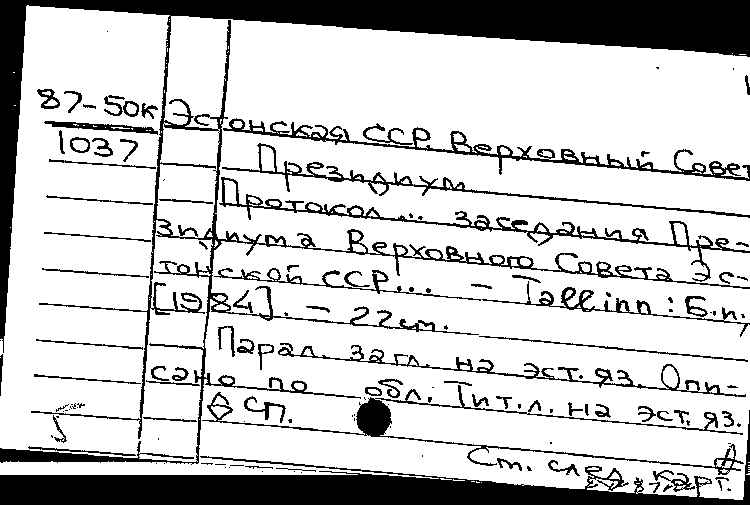 87-50к Эстонская ССР. Верховный Совет
1037 Президиум
Протокол... заседания Пре-
зидиума Верховного Совета Эс-
тонской ССР... – Tallinn : Б.и.,
[1984]. – 22 см.
Парал. загл. на эст. яз. Опи-
сано по обл. Тит. л. на эст. яз.
◇ СП.
См. след. карт.